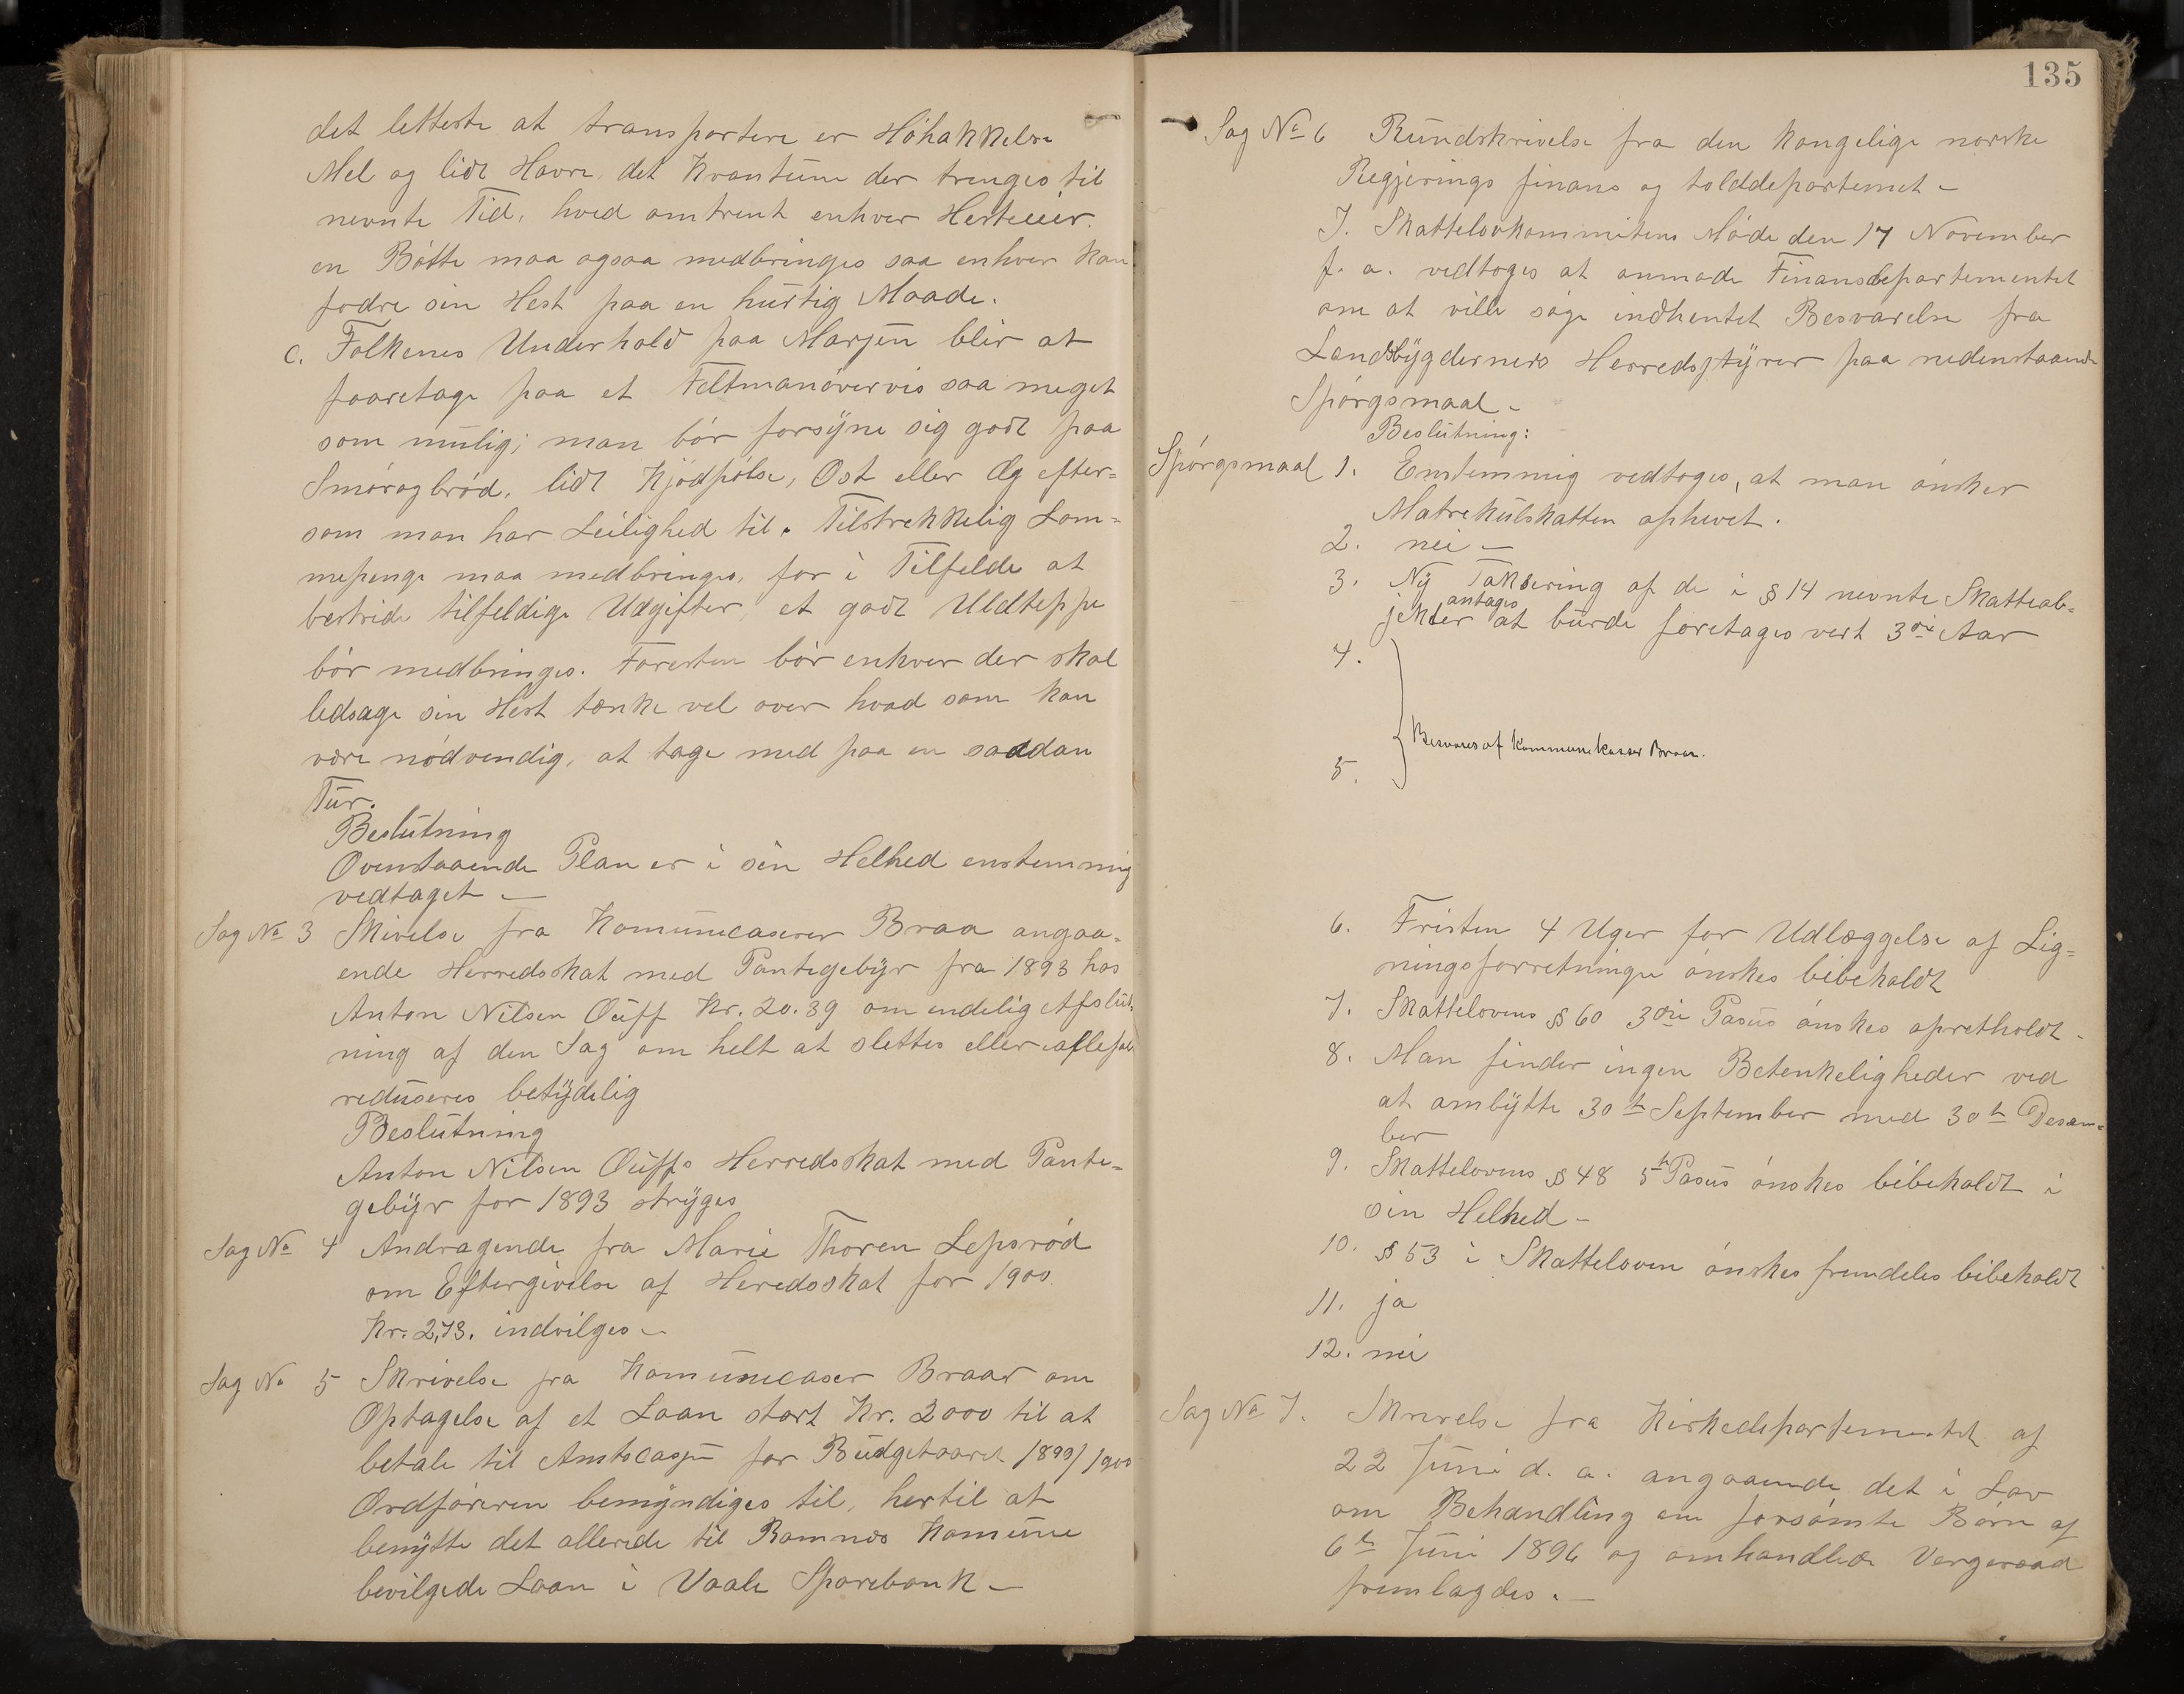 det letteste at transportere er Höhakkelse
Mel og lidt Havre, det Kvantum der trenges til
nevnte Tid, hved omtrent enhver Hesteeier.
en Bötte maa ogsaa medbringes saa enhver kan
fodre sin Hest paa en hurtig Maade.
C. Folkenes Underhold paa Marjen blir at
faaretage paa et Feltmanövervis saa meget
som mulig; man bör forsyne sig godt paa
Smörogbröd, lidt Kjödpölse, Ost eller Æg efter=
som man har Leilighed til. Tilstrekkelig Lom=
mepenge maa medbringes, for i Tilfelde at
bestride tilfeldige Udgifter, et godt Uldteppe
bör medbringes. Foresten bör enhver der skal
ledsage sin Hest tænke vel over hvad som kan
være nödvendig, at tage med paa en saadan
Tur.
Beslutning
Ovenstaaende Plan er i sin Helhed enstemmig
vedtaget —
Sag No 3 Skivelse fra Komunecaserer Braa angaa=
ende Herredsskat med Pantegebyr fra 1893 hos
Anton Nilsen Öuff Kr. 20.39 om endelig Afslut=
ning af den Sag om helt at slettes eller
reduseres betydelig
Beslutning
Anton Nilsen Öuffs Herredsskat med Pante=
gebyr for 1893 stryges
Sag No 4 Andragende fra Marie Thoren Lepsröd
om Eftergivelse af Heredsskat for 1900
Kr. 2,73. indvilges —
Sag No 5 Skrivelse fra Komunecaser Braar om
Optagelse af et Laan stort Kr. 2000 til at
betale til Amtscassen for Budgetaaret 1899/1900
Ordföreren bemyndiges til, hertil at
benytte det allerede til Ramnes Komune
bevilgede Laan i Vaale Sparebank —
135
Sag No 6 Rundskrivelse fra den kongelige norske
Regjerings finans og tolddepartemet —
I. Skattelovkommitens Möde den 17 November
f. a. vedtoges at anmode Finansdepartementet
om at ville söge indhentet Besvarelse fra
Landsbygderners Herredstyrer paa nedenstaaende
Spörgsmaal —
Beslutning:
Spörgsmaal 1. Enstemmig vedtoges, at man önsker
Matrekulskatten ophevet.
2. nei —
3. Ny Taksering af de i § 14 nevnte Skatteob=
jekter antages at burde foretages vert 3die Aar
4.
Besvares af Kommunekasser Braar.
5.
6. Fristen 4 Uger for Udlæggelse af Lig=
ningsforretningen önskes bibeholdt
7. Skattelovens § 60 3die Pasus önskes opretholdt —
8. Man finder ingen Betenkeligheder ved
at ombytte 30te September med 30te Desem=
ber
9. Skattelovens § 48 5te Pasus önskes bibeholdt i
sin Helhed —
10. § 53 i Skatteloven önskes fremdeles bibeholdt
11. ja
12. nei
Sag No 7. Skrivelse fra Kirkedepartementet af
22 Juni d. a. angaaende det i Lov
om Behandling om forsömte Börn af
6te Juni 1896 og omhandlede Vergeraad
fremlagdes. —